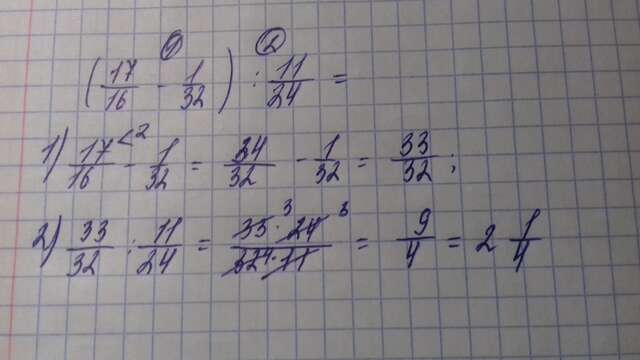 ① ②
(17/16 - 1/32) : 11/24 =
1) 17/16 <2 - 1/32 = 34/32 - 1/32 = 33/32;
2) 33/32 : 11/24 = 33 · 24 / 32 · 11 3 3 4 = 9/4 = 2 1/4